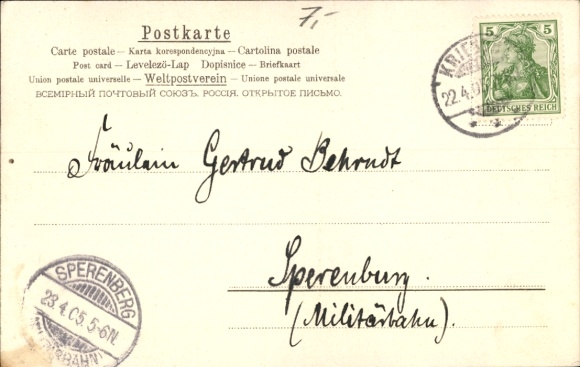 7,-
Postkarte
Carte postale – Karta korespondencyjna – Cartolina postale
Post card – Levelező-Lap Dopisnice – Briefkaart
Union postale universelle – Weltpostverein – Unione postale universale
ВСЕМІРНЫЙ ПОЧТОВЫЙ СОЮЗЪ. РОССІЯ. ОТКРЫТОЕ ПИСЬМО.
5 5
DEUTSCHES REICH
22.4.05
Fräulein Gertrud Behrndt
Sperenberg.
(Militärbahn).
SPERENBERG
23.4.05.5-6N.